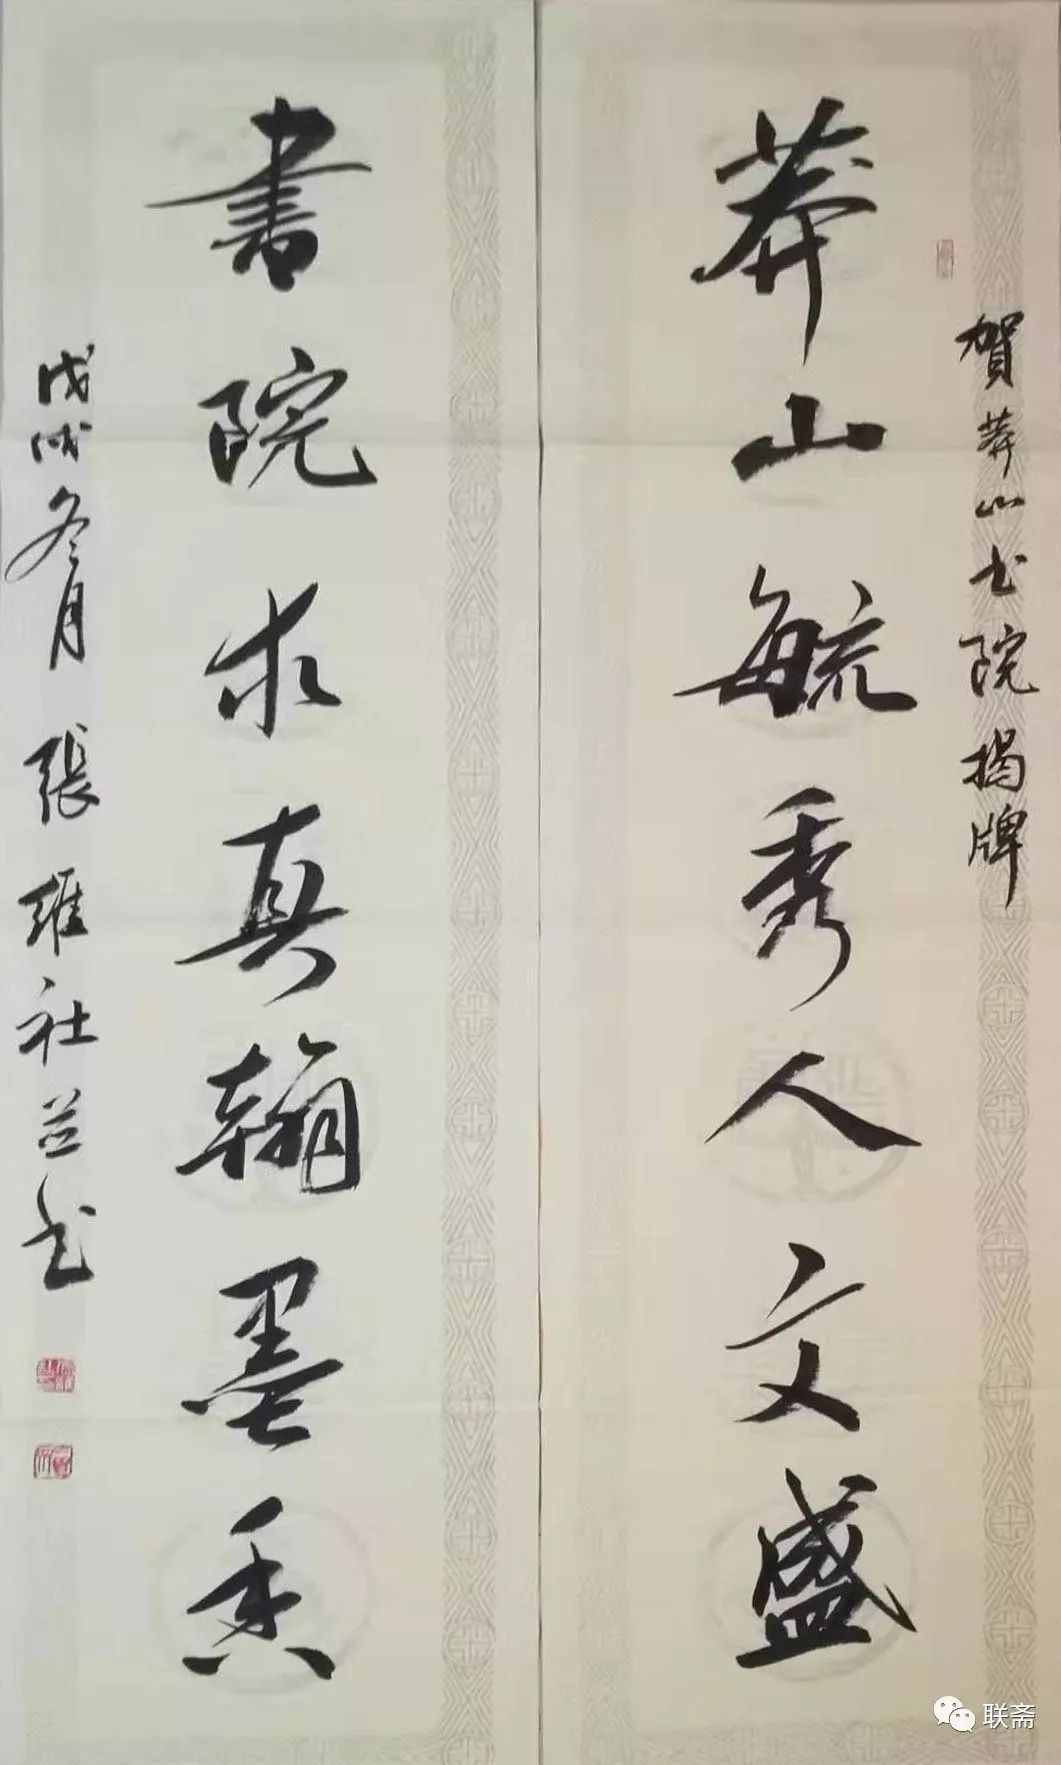 賀莽山书院揭牌
莽山毓秀人文盛
書院求真翰墨香
戊戌冬月 張維社并书
联斋